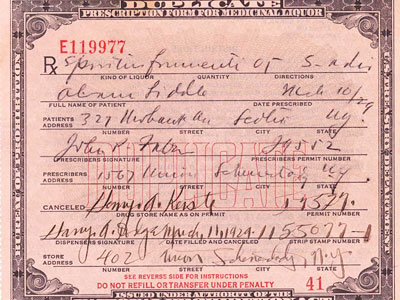 DUPLICATE
PRESCRIPTION FORM FOR MEDICINAL LIQUOR
E119977
Rx Spiritus Frumenti
KIND OF LIQUOR QUANTITY DIRECTIONS
Riddle Mch 10/29
FULL NAME OF PATIENT DATE PRESCRIBED
PATIENTS ADDRESS 327 Scotia NY.
NUMBER STREET CITY STATE
John R. 29552
PRESCRIBERS SIGNATURE PRESCRIBERS PERMIT NUMBER
PRESCRIBERS ADDRESS 1567 Union Schenectady NY
NUMBER STREET CITY STATE
CANCELED Henry A.
DRUG STORE NAME AS ON PERMIT PERMIT NUMBER
March 11, 1929
DISPENSERS SIGNATURE DATE FILLED AND CANCELED STRIP STAMP NUMBER
STORE ADDRESS 402 Union Schenectady, N.Y.
NUMBER STREET CITY STATE
SEE REVERSE SIDE FOR INSTRUCTIONS
DO NOT REFILL OR TRANSFER UNDER PENALTY 41
ISSUED UNDER AUTHORITY OF THE